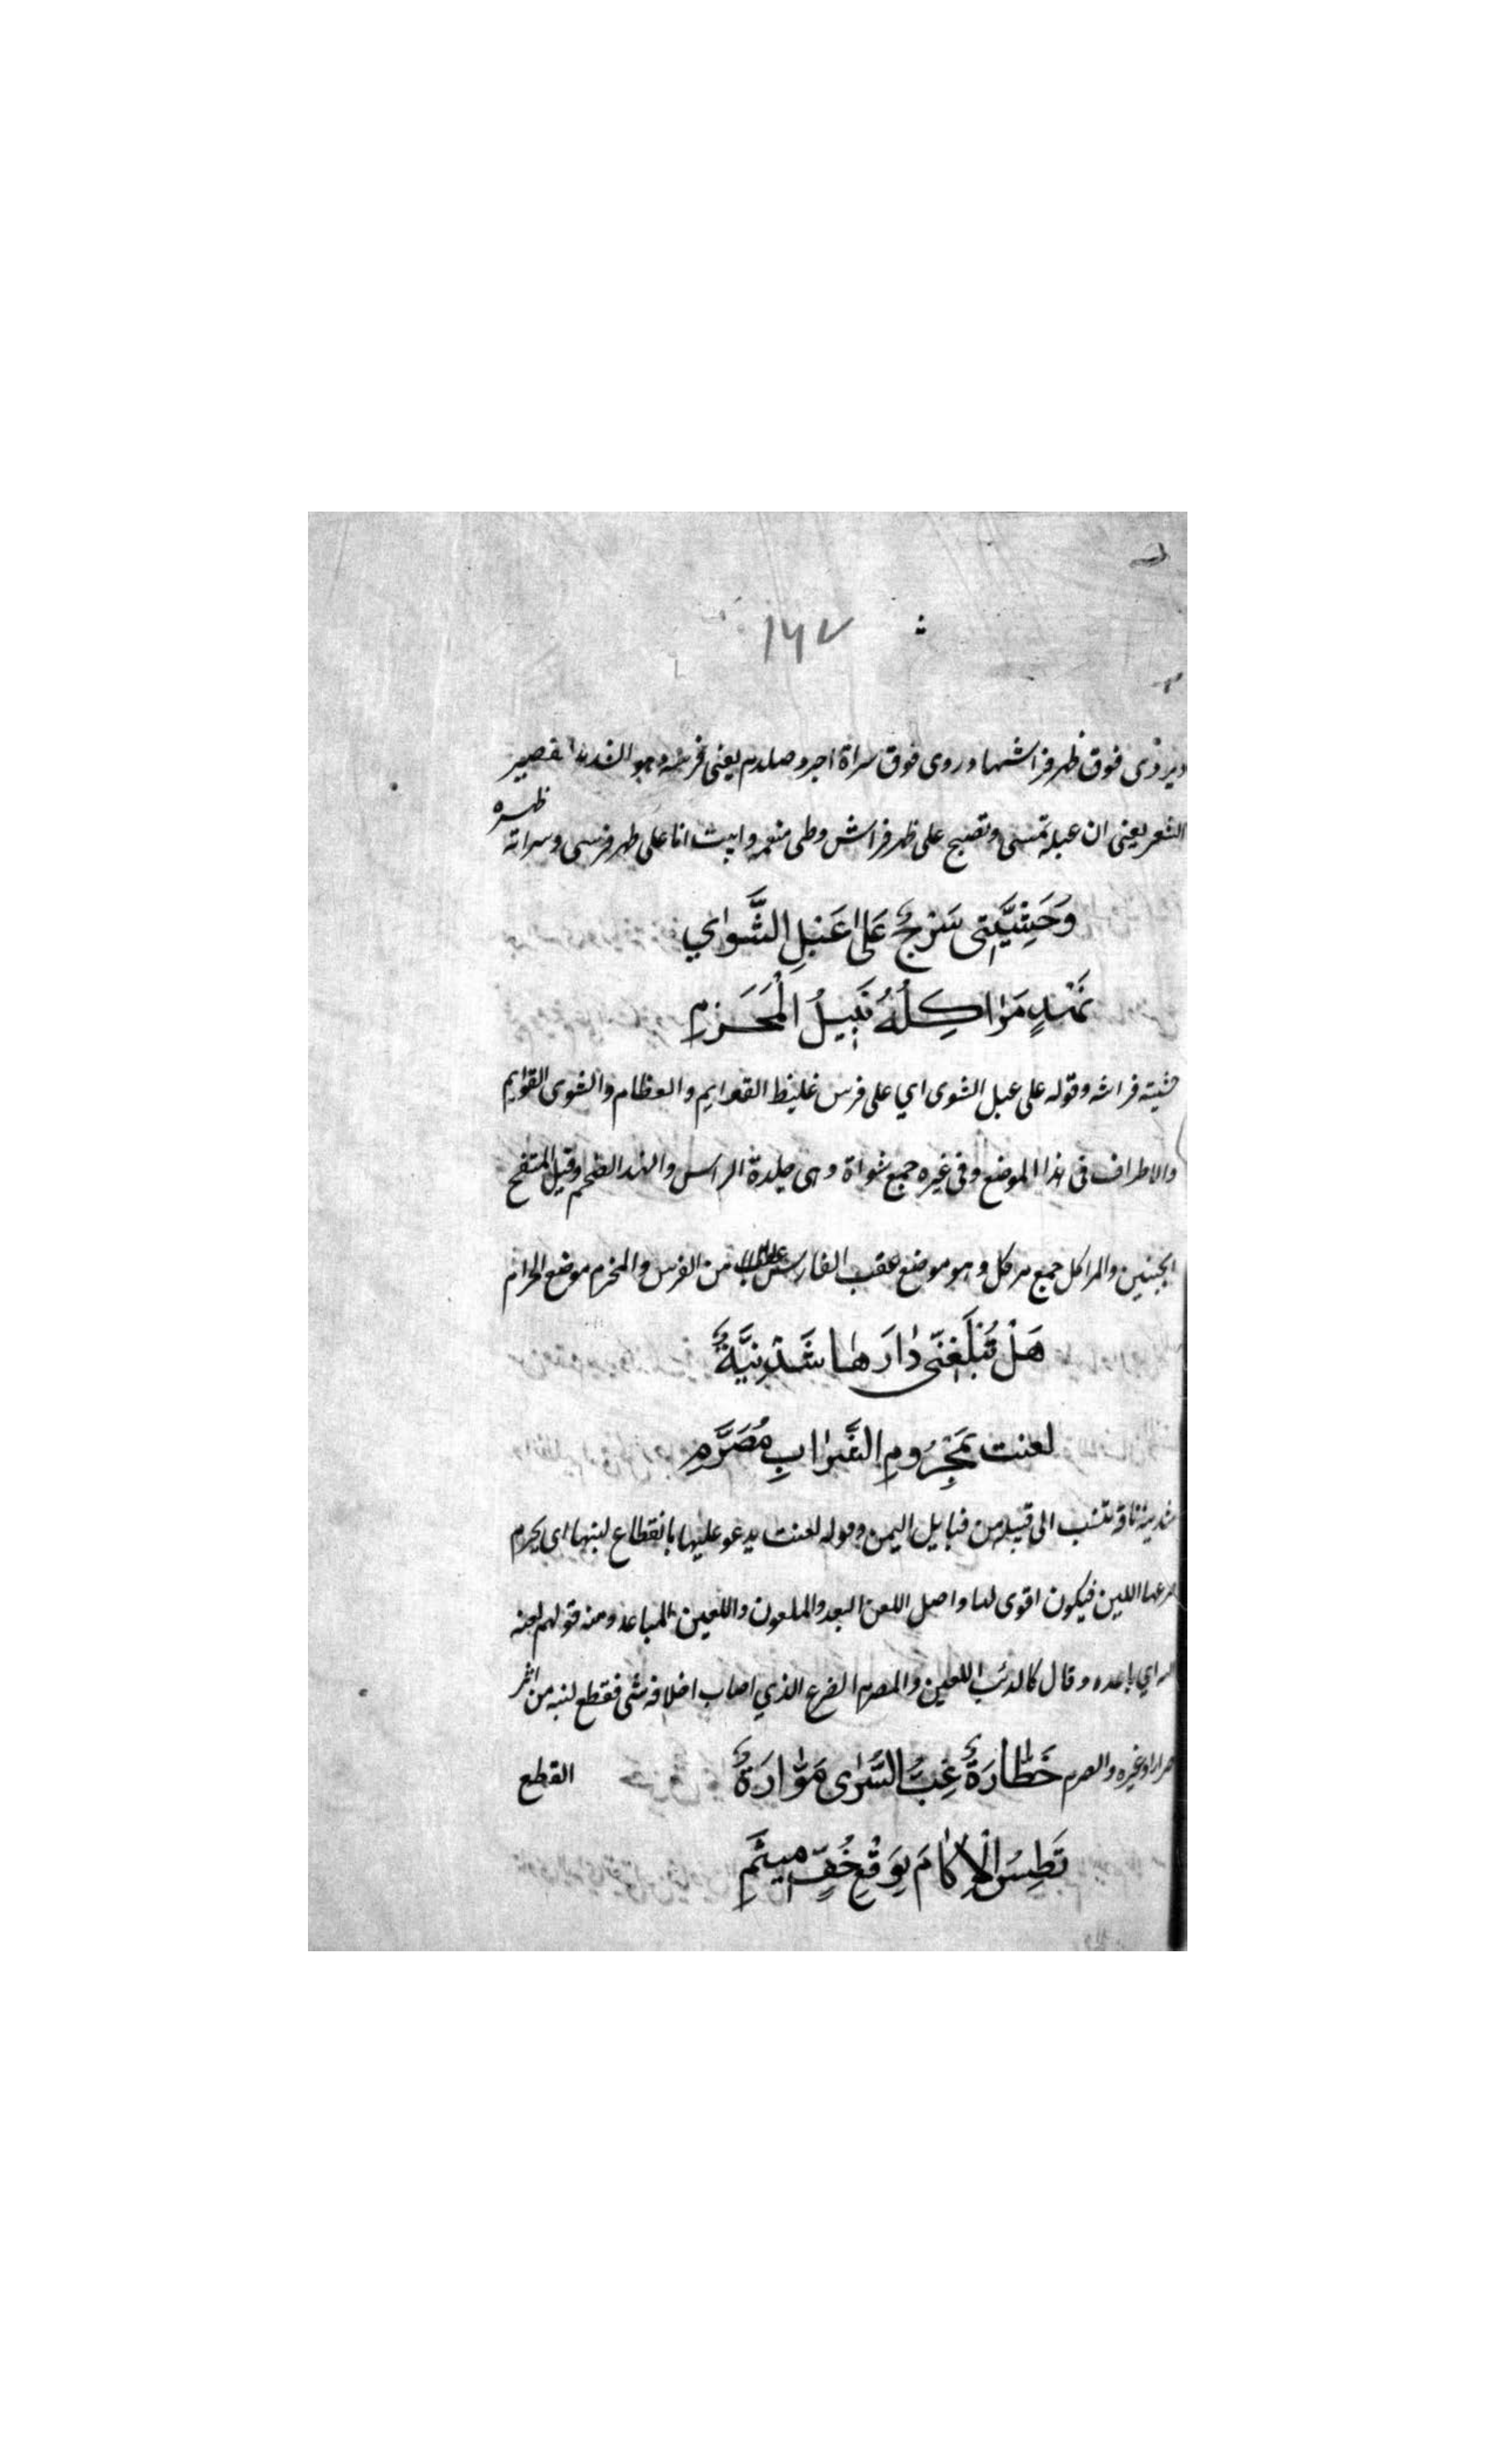 ١٦٧
ويروى فوق ظهر فراشها وروى فوق سراة اجرد صلدم يعنى فرسه وهو القصير
الشعر يعنى ان عبلة تمسى وتصبح على ظهر فراش وطى منعمه وابيت انا على ظهر فرسى وسراته
ظهره
وَحَشِيَّتِى سَرْجٌ عَلىٰ عَبْلِ الشَّوٰاي
نَهْدٍ مَرٰاكِلُهُ نَبِيلُ الْمَحْزَمِ
حشيته فراشه وقوله على عبل الشوى اي على فرس غليظ القوايم والعظام والشوى القوايم
والاطراف فى هذا الموضع وفى غيره جمع شواة وهى جلدة الراس والنهد الضخم وقيل المنتفخ
الجنبين والمراكل جمع مركل وهو موضع عقب الفارس من الفرس والمحزم موضع الحزام
هَلْ تُبْلِغَنّى دٰارَهٰا شَدَنِيَّةٌ
لعنت بمَحْرُومِ الشَّرٰابِ مُصَرَّمِ
شدنية ناقة تنسب الى قبيلة من قبايل اليمن وقوله لعنت يدعو عليها بانقطاع لبنها اى يحرم
ضرعها اللبن فيكون اقوى لها واصل اللعن البعد والملعون واللعين المباعد ومنه قولهم لعنه
الله اي باعده وقال كالذئب اللعين والمصرم الضرع الذي اصاب اخلافه شى فقطع لبنه من اثر
صرار او غيره والصرم القطع
خَطّٰارَةٌ غِبَّ السُّرٰى مَوّٰارَةٌ
تَطِسُ الْاِكٰامَ بِوَقْعِ خُفٍّ مِيثَمِ